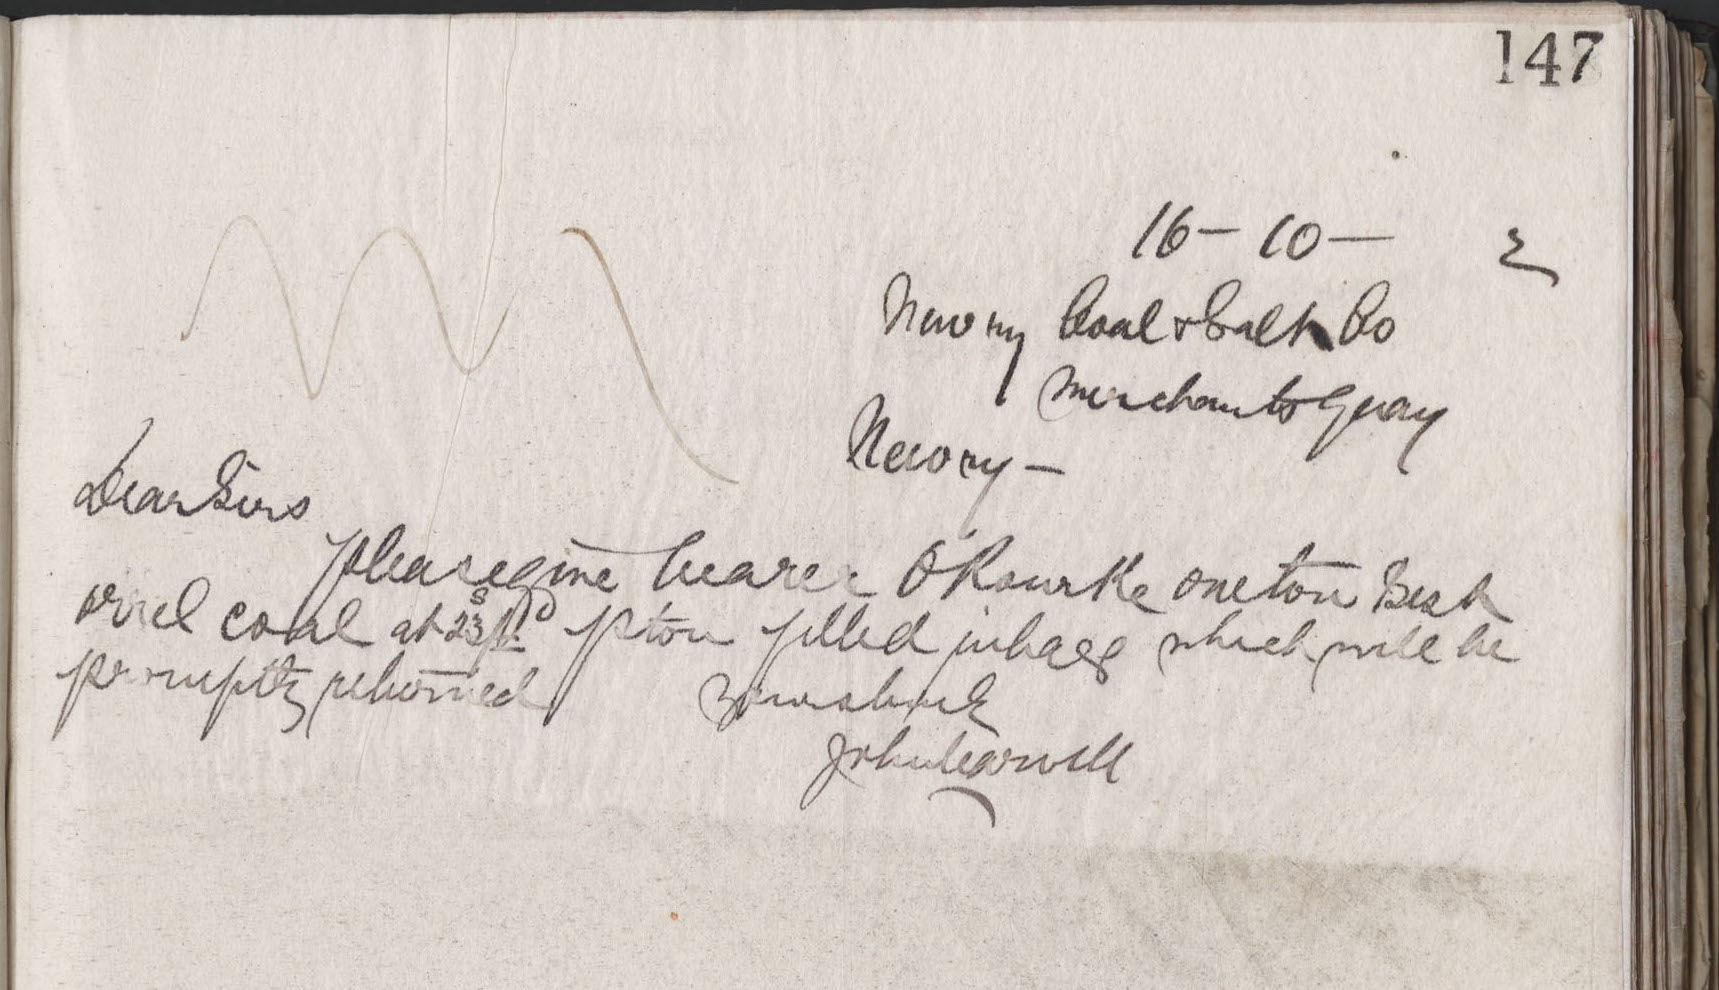 147
16 - 10 -
Newry Coal & Salt Co
Merchants Quay
Newry -
Dear Sirs
please give bearer O'Rourke one ton Best
orrel coal at 23s/ d p ton filled in bags which will be
promptly returned Yours truly
John